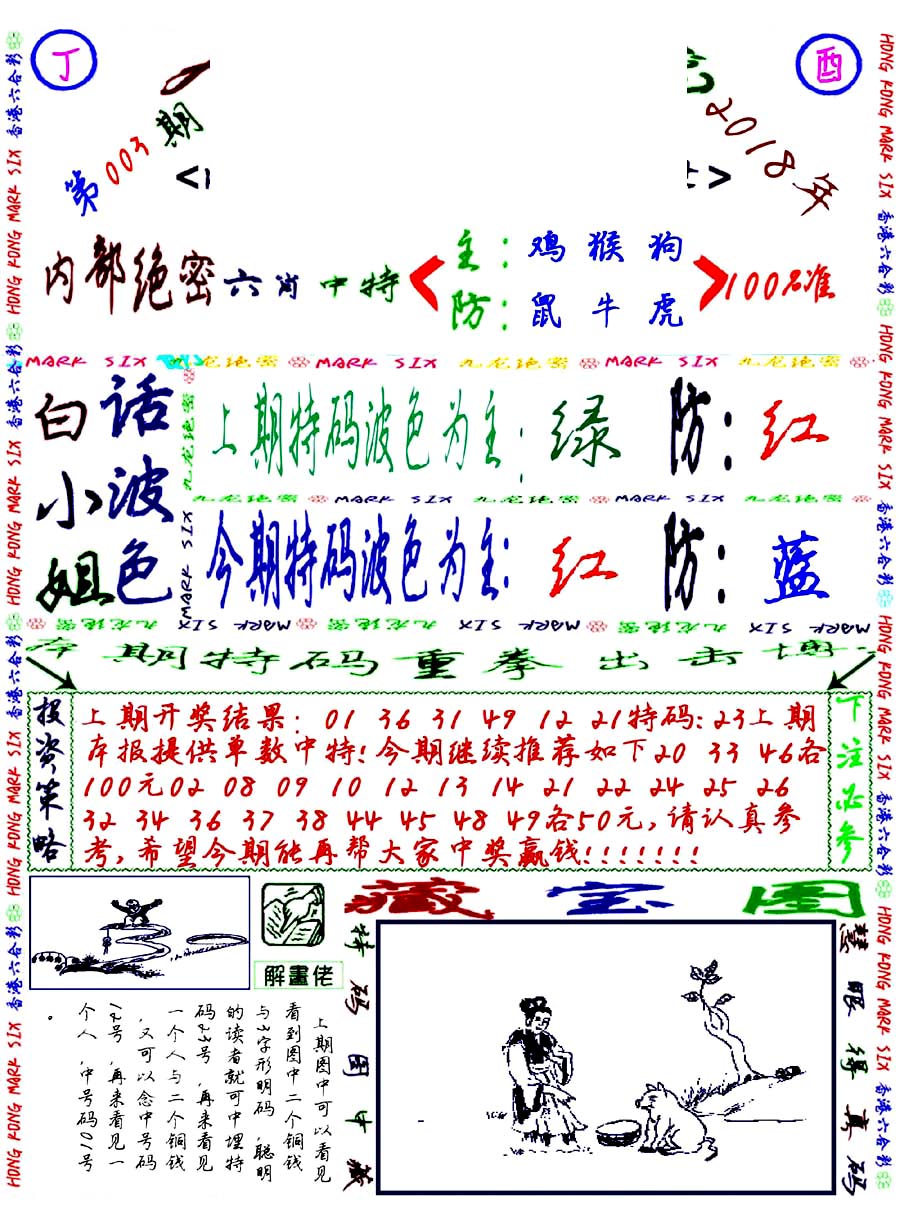 丁
酉
第003期
2018年
内部绝密六肖中特
主：鸡 猴 狗
防：鼠 牛 虎
100%准
MARK SIX 九龙绝密 MARK SIX 九龙绝密 MARK SIX 九龙绝密
白小姐
话波色
上期特码波色为主：绿 防：红
九龙绝密 MARK SIX 九龙绝密 MARK SIX 九龙绝密
今期特码波色为主：红 防：蓝
MARK SIX 九龙绝密 MARK SIX 九龙绝密 MARK SIX 九龙绝密
本期特码重拳出击博
投资策略
上期开奖结果：01 36 31 49 12 21特码：23上期
本报提供单数中特！今期继续推荐如下20 33 46各
100元02 08 09 10 12 13 14 21 22 24 25 26
32 34 36 37 38 44 45 48 49各50元，请认真参
考，希望今期能再帮大家中奖赢钱！！！！！！！
下注必参
解畫佬
上期图中可以看见
看到图中二个铜钱
与3字形明码，聪明
的读者就可中埋特
码23号，再来看见
一个人与二个铜钱
，又可以念中号码
12号，再来看见一
个人，中号码01号
。
藏宝图
特码图中藏
慧眼得真码
HONG KONG MARK SIX 香港六合彩
HONG KONG MARK SIX 香港六合彩